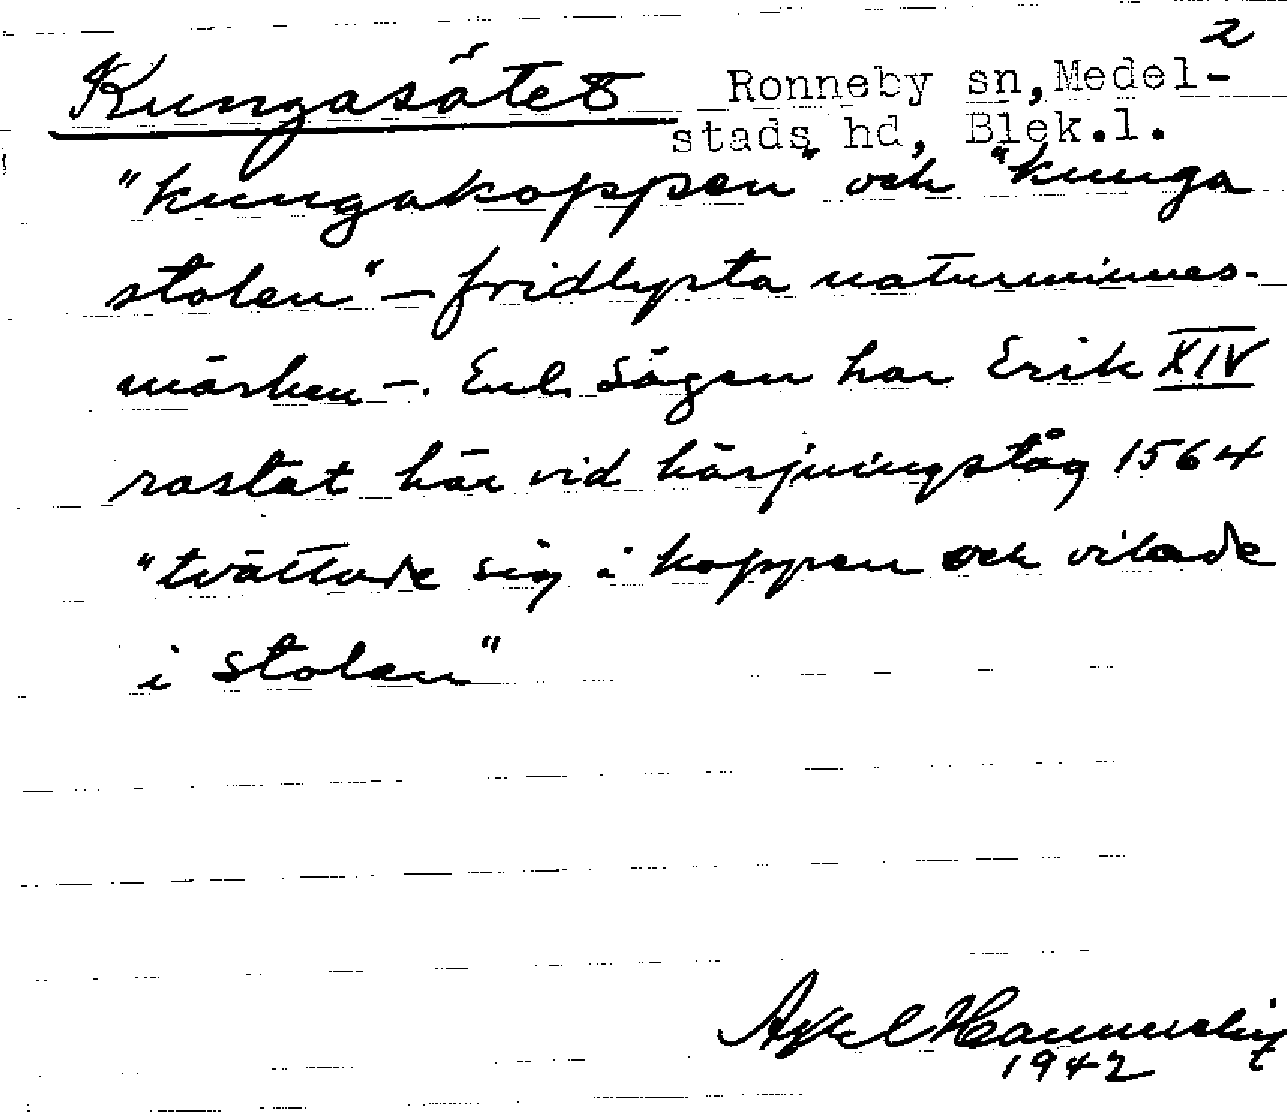 2
Kungasätet Ronneby sn, Medel-
stads hd, Blek.l.
"kungakoppen" och "kunga
stolen" - fridlysta naturminnes-
märken -. Enl. sägen har Erik XIV
rastat här vid härjningståg 1564
"tvättade sig i koppen och vilade
i stolen"
Axel
1942